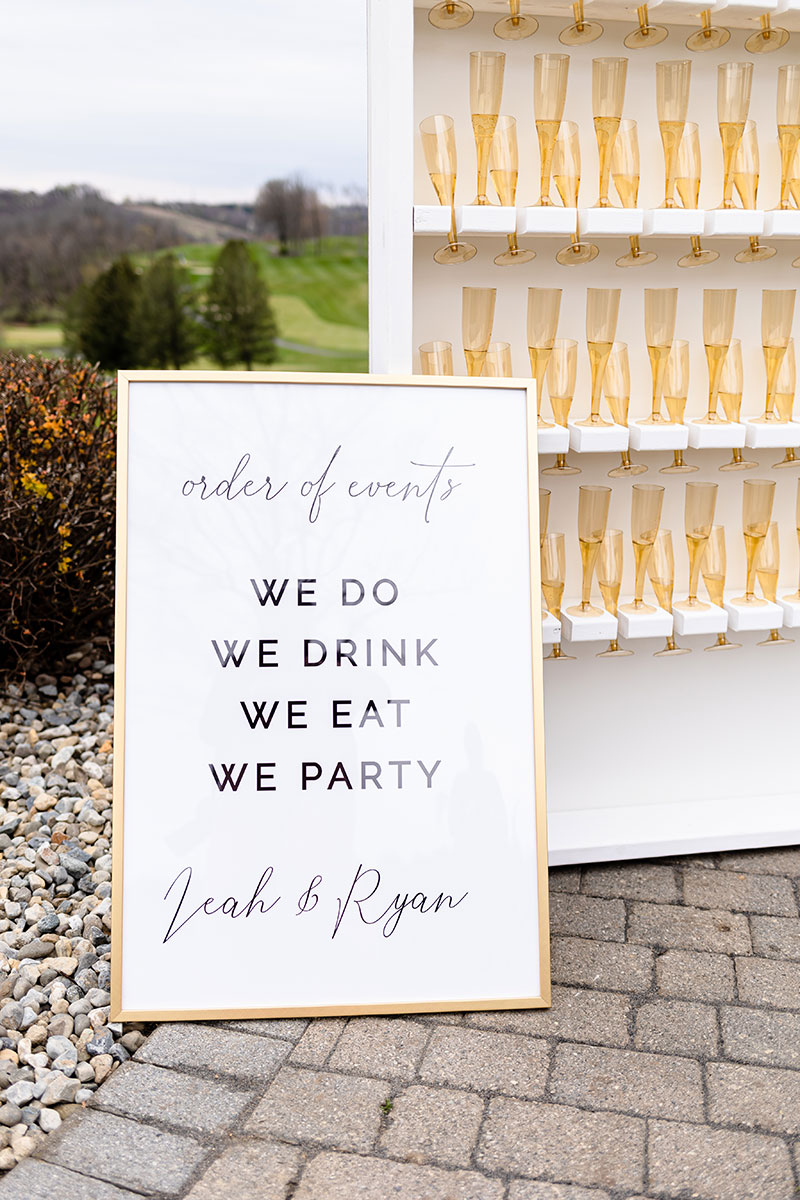 order of events
WE DO
WE DRINK
WE EAT
WE PARTY
Leah & Ryan